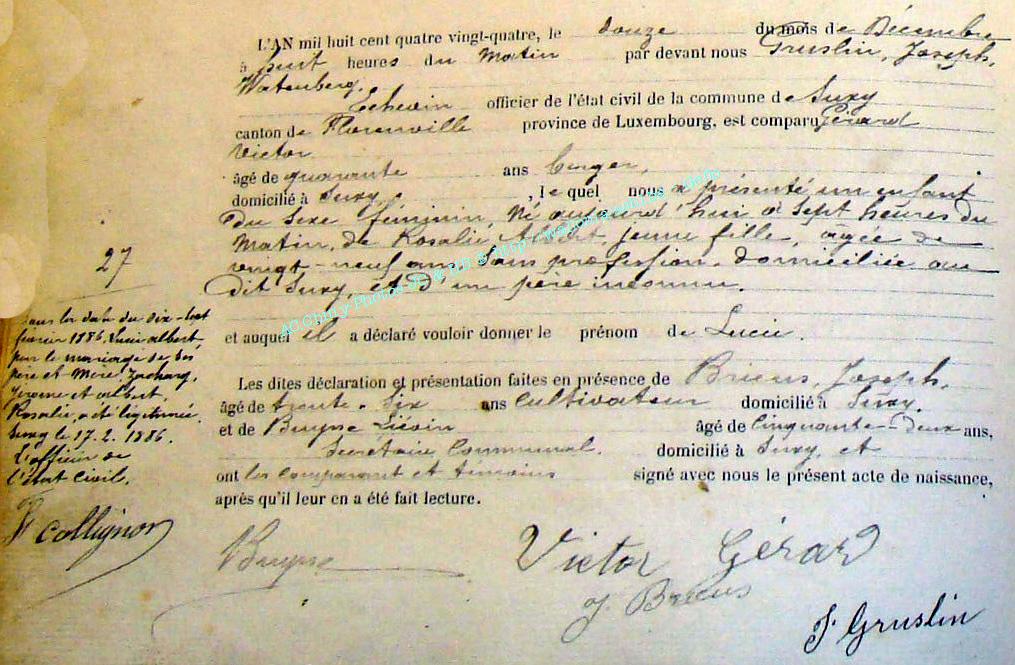 L'AN mil huit cent quatre vingt-quatre, le douze du mois de Décembre
à huit heures du Matin par devant nous Gruslin, Joseph,
Watenberg,
Echevin officier de l'état civil de la commune de Suxy
canton de Florenville province de Luxembourg, est comparu Gérard
Victor
âgé de quarante ans berger,
domicilié à Suxy, , le quel nous a présenté un enfant
du sexe féminin, né aujourd'hui à sept heures du
Matin, de Rosalie Albert jeune fille, agée de
vingt-neuf ans, sans profession, domiciliée au
dit Suxy, et d'un père inconnu.
et auquel il a déclaré vouloir donner le prénom de Lucie.
Les dites déclaration et présentation faites en présence de Bricus, Joseph,
âgé de trente-six ans Cultivateur domicilié à Suxy.
et de Buysse Liévin âgé de Cinquante-Deux ans,
Secrétaire Communal. domicilié à Suxy, et
ont les comparant et témoins signé avec nous le présent acte de naissance,
après qu'il leur en a été fait lecture.
27
Sous la date du dix-sept
février 1886, Lucie albert,
par le mariage de ses
père et Mère, Zachary,
Jérome et albert,
Rosalie, a été légitimée.
Suxy le 17.2.1886.
L'officier de
l'état Civil,
Collignon
Buysse
Victor Gérard
J. Bricus
J. Gruslin